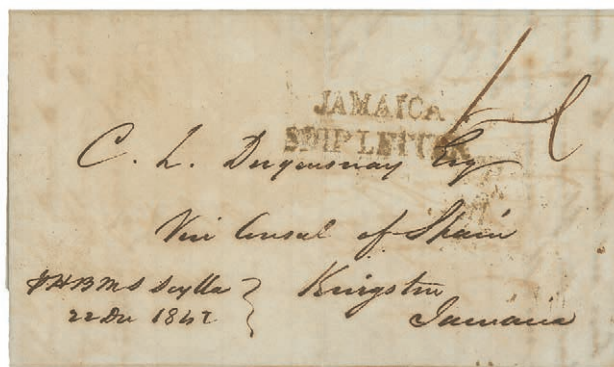 JAMAICA
SHIP LETTER
C. L. Duquesnay Esq
Vice Consul of Spain
Kingston
Jamaica
HBMS Scylla
22 De 1842